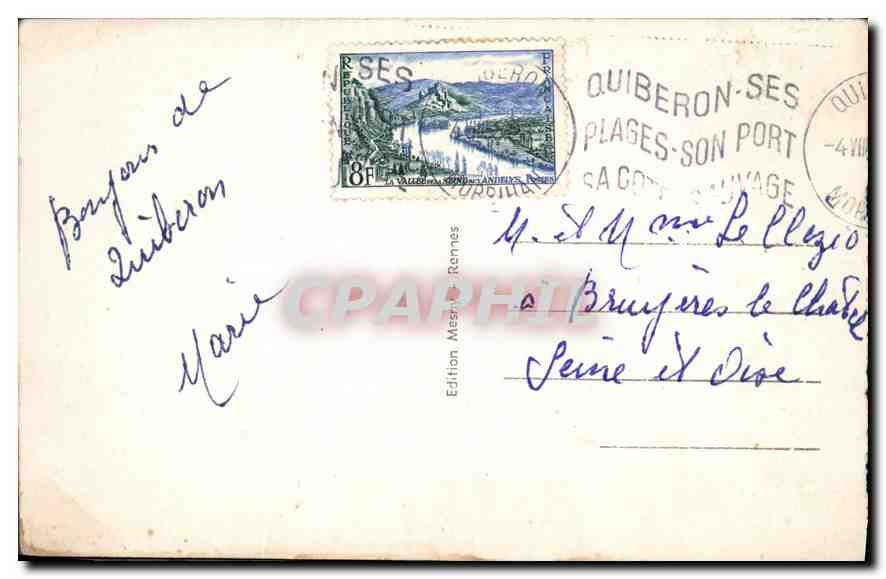 Bonjour de
Quiberon
Marie
RÉPUBLIQUE FRANÇAISE
8F
LA VALLÉE DE LA SEINE AUX ANDELYS POSTES
SES
QUIBERON
MORBIHAN
QUIBERON-SES
PLAGES-SON PORT
SA COTE SAUVAGE
QUI
-4 VIII
MOR
M. et Mme Le Clezio
à Bruyères le Chatel
Seine et Oise
Edition Mesny - Rennes
CPAPHIL